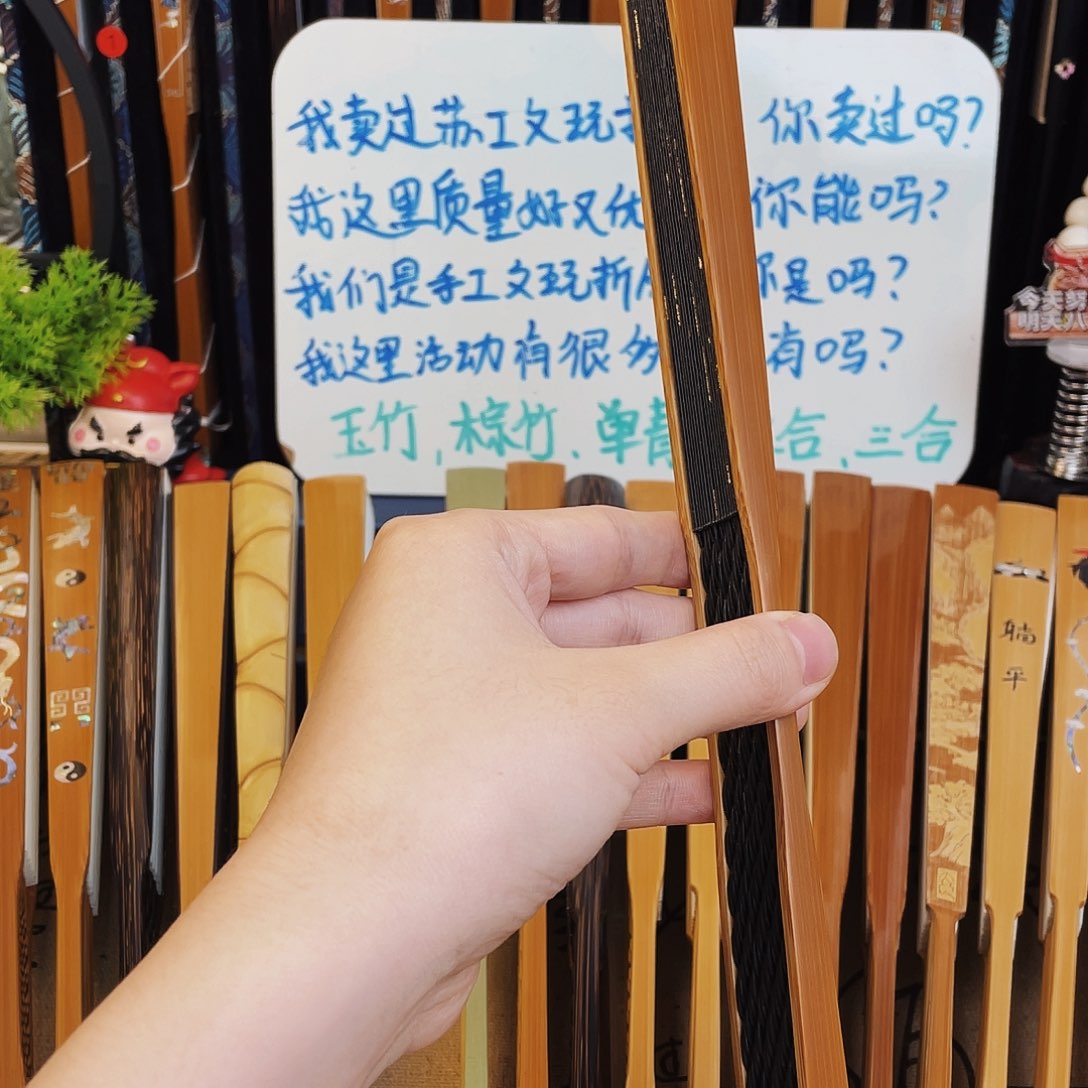 我卖过苏工文玩 你卖过吗?
我这里质量好又优 你能吗?
我们是手工文玩折 你是吗?
我这里活动有很多 有吗?
玉竹,棕竹、单青 合、三合
今天努
明天八
躺平